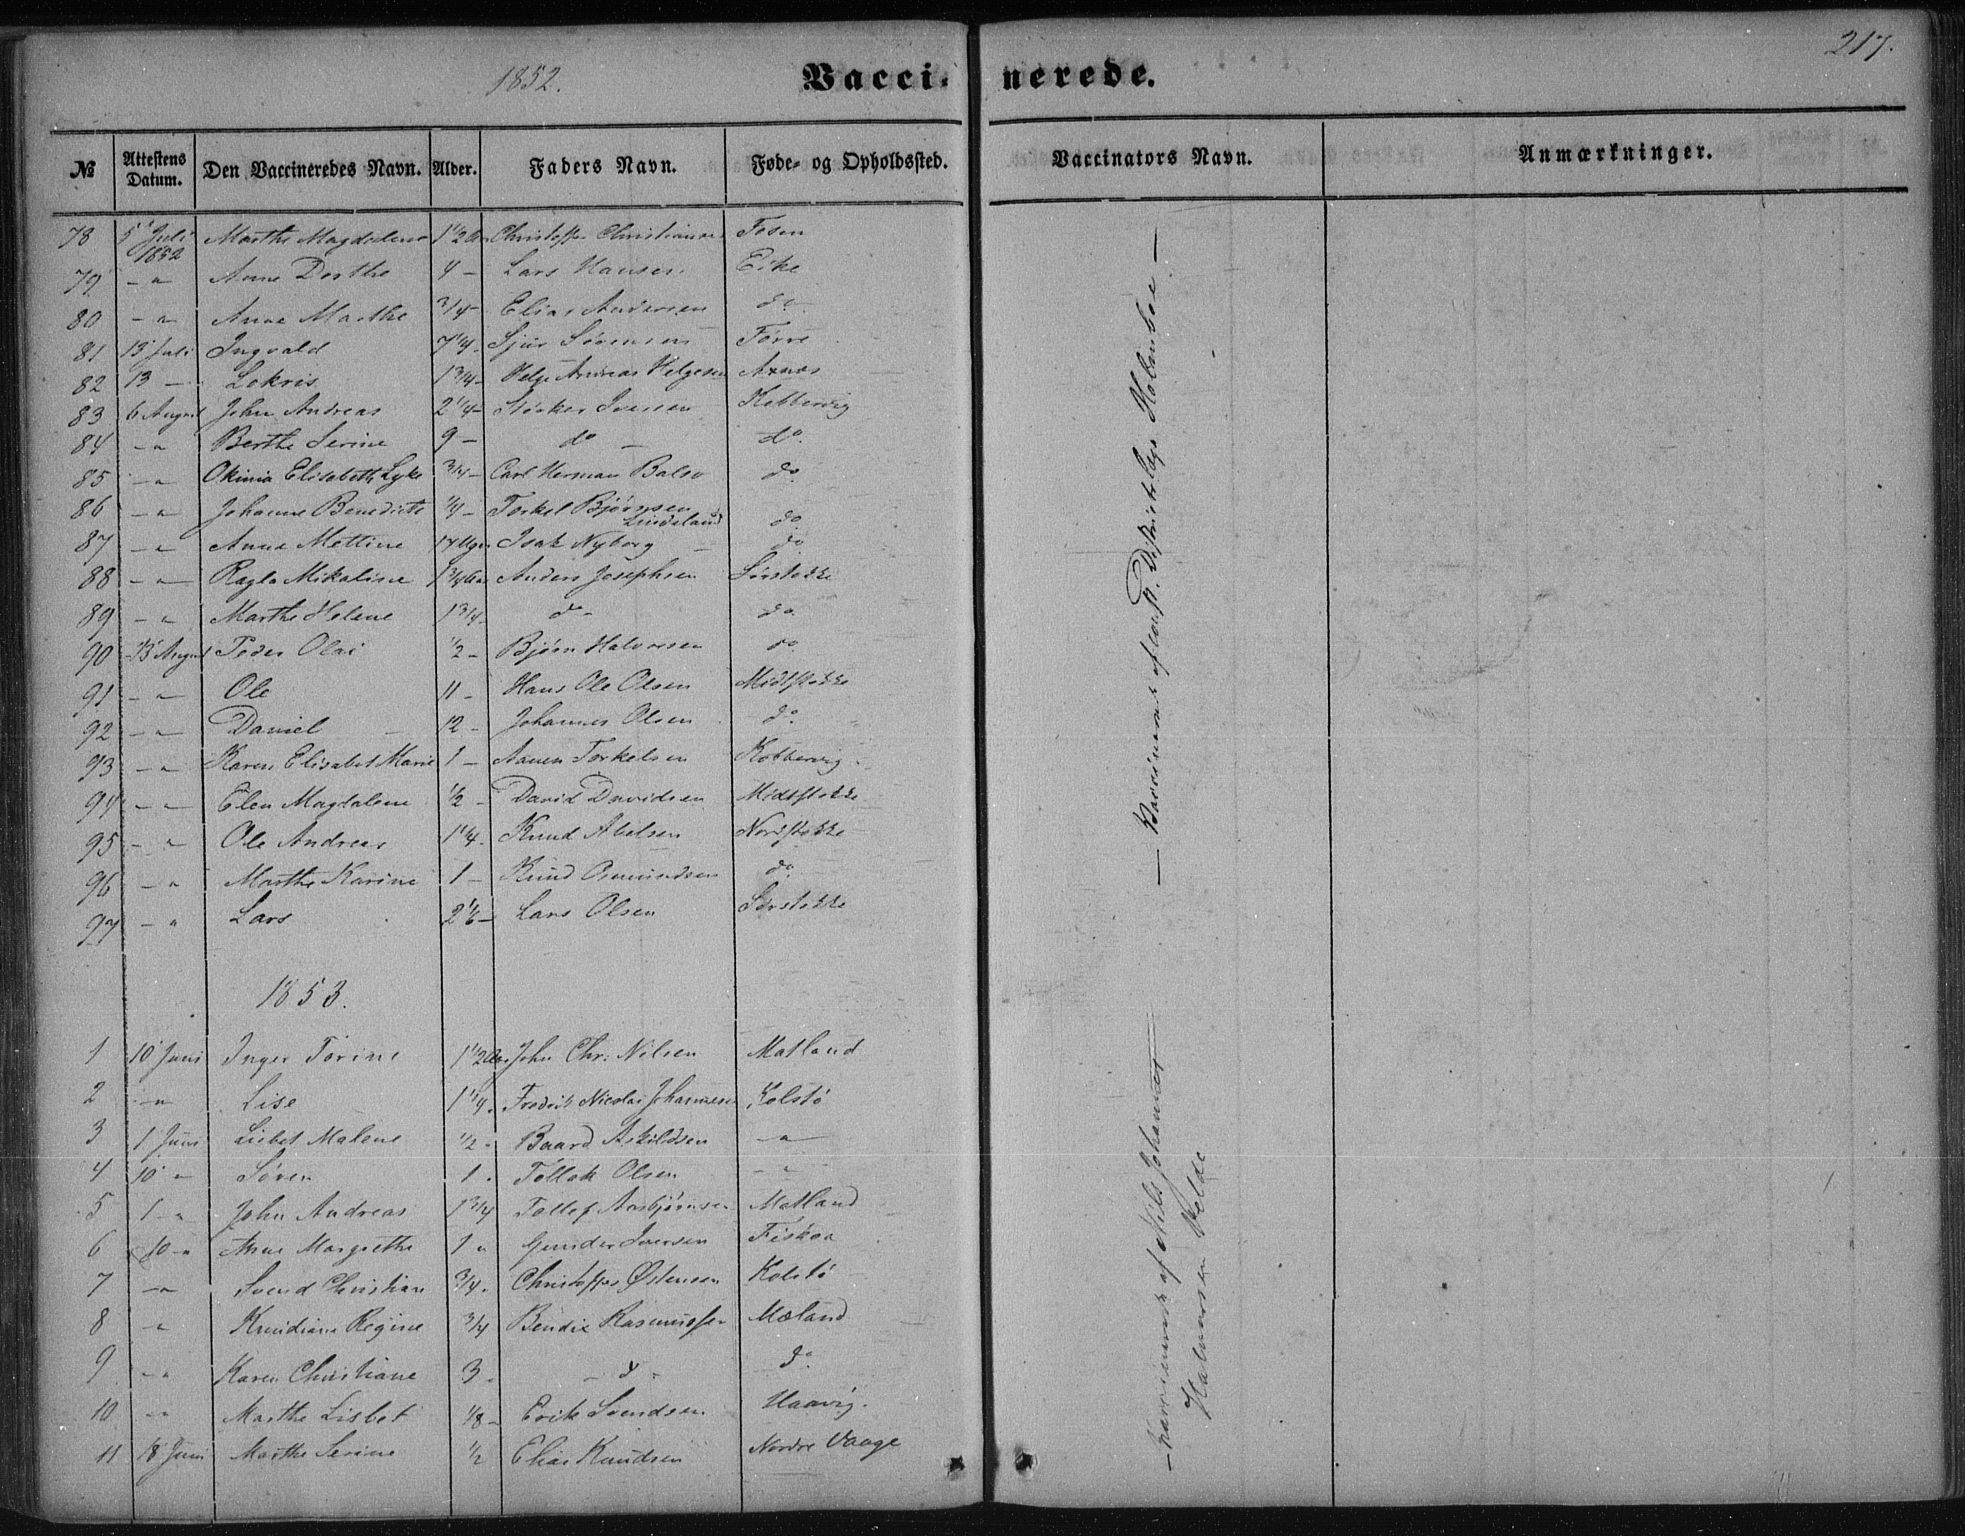 1852.
Vaccinerede.
217.
№ Attestens Datum. Den Vaccineredes Navn. Alder. Faders Navn. Føde- og Opholdssted. Vaccinators Navn. Anmærkninger.
78 5 Juli 1852 Marthe Magdalene 1 1/2 Aar Christoffer Christiansen Fosen
79 - " Anne Dorthe 4 - Lars Hansen Eike
80 - " Anne Marthe 3/4 - Elias Andersen do
81 13 Juli Ingvald 7 1/4 Sjur Sørensen Førre
82 13 - Lokris 1 3/4 - Helge Andreas Helgesen Axnæs
83 6 August John Andreas 2 1/4 - Størker Iversen Kobbervig
84 - " Berthe Serine 9 - do - do.
85 - " Okinia Elisabeth Lyke 3/4 - Carl Herman Balso do.
86 - " Johanne Benedicte 1/4 - Torkel Bjørnsen Lindeland do
87 - " Anna Mettine 17 Uger Isak Nyborg do
88 - " Ragla Mikaline 1 3/4 Aar Anders Josephsen Sørstokke
89 - " Marthe Helene 1 3/4 do do
90 13 August Peder Olai 1/2 - Bjørn Halvorsen do
91 - " Ole 11 - Hans Ole Olsen Midtstokke
92 - " Daniel 12 - Johannes Olsen do.
93 - " Karen Elisabet Marie 1 - Aanen Torkelsen Kobbervig.
94 - " Elen Magdalene 1/2 - David Davidsen Midtstokke
95 - " Ole Andreas 1 1/4. Knud Abelsen Nordstokke
96 - " Marthe Karine 1 - Knud Osmundsen do.
97 - " Lars 2 1/6 - Lars Olsen Sørstokke
— Vaccineret af const. Districtslæge Holmboe —
1853.
1 10 Juni Inger Torine 1 1/2 Aar John Chr: Nilsen Matland
2 - " Lise 1 1/4. Fredrik Nicolai Johannessen Kolstø
3 1 Juni Lisbet Malene 1/2 - Baard Askildsen - " -
4 10 " Søren 1. Tollak Olsen - "
5 1 - " John Andreas 1 3/4 Tollef Aasbjørnsen Matland
6 10 - " Anne Margrethe 1 " Gunder Iversen Fiskaa
7 - " Svend Christian 3/4. Christoffer Østensen Kolstø
8 " Knudiane Regine 3/4 Bendix Rasmussen Mæland
9 - " Karen Christiane 3. - do - do.
10 - " Marthe Lisbet 1/8 - Erik Svendsen Haavig.
11 18 Juni Marthe Serine 1/2 Elias Knudsen Nordre Vaage
— Vaccinerede af Nils Johannes Halvorsen Velde